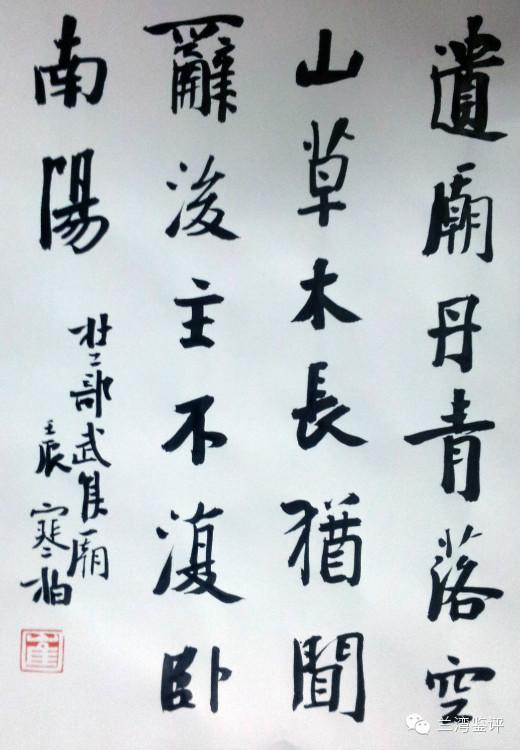 遺廟丹青落空
山草木長猶聞
辭後主不復卧
南陽
杜工部武侯廟
壬辰寒柏
崔
兰湾鉴评